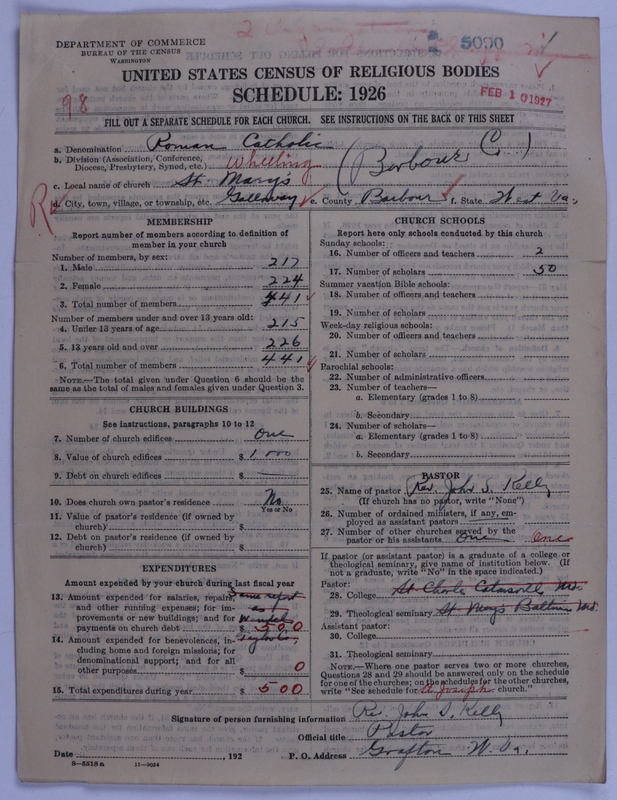 DEPARTMENT OF COMMERCE
BUREAU OF THE CENSUS
WASHINGTON
5090
UNITED STATES CENSUS OF RELIGIOUS BODIES
SCHEDULE: 1926
98
FEB 10 1927
FILL OUT A SEPARATE SCHEDULE FOR EACH CHURCH. SEE INSTRUCTIONS ON THE BACK OF THIS SHEET
a. Denomination Roman Catholic
b. Division (Association, Conference, Diocese, Presbytery, Synod, etc.) Wheeling (Barbour C.)
c. Local name of church St. Mary's
d. City, town, village, or township, etc. Galloway e. County Barbour f. State West Va.
MEMBERSHIP
Report number of members according to definition of
member in your church
Number of members, by sex:
1. Male 217
2. Female 224
3. Total number of members 441
Number of members under and over 13 years old:
4. Under 13 years of age 215
5. 13 years old and over 226
6. Total number of members 441
NOTE.—The total given under Question 6 should be
same as the total of males and females given under Question 3.
CHURCH BUILDINGS
See instructions, paragraphs 10 to 12
7. Number of church edifices One
8. Value of church edifices $ 1,000
9. Debt on church edifices $
10. Does church own pastor's residence No
Yes or No
11. Value of pastor's residence (if owned by
church) $
12. Debt on pastor's residence (if owned by
church) $
EXPENDITURES
Amount expended by your church during last fiscal year
13. Amount expended for salaries, repairs, Same report
and other running expenses; for im- as
provements or new buildings; and for
payments on church debt $ 500
14. Amount expended for benevolences, in-
cluding home and foreign missions; for
denominational support; and for all
other purposes $ 0
15. Total expenditures during year $ 500
CHURCH SCHOOLS
Report here only schools conducted by this church
Sunday schools:
16. Number of officers and teachers 2
17. Number of scholars 50
Summer vacation Bible schools:
18. Number of officers and teachers
19. Number of scholars
Week-day religious schools:
20. Number of officers and teachers
21. Number of scholars
Parochial schools:
22. Number of administrative officers
23. Number of teachers—
a. Elementary (grades 1 to 8)
b. Secondary
24. Number of scholars—
a. Elementary (grades 1 to 8)
b. Secondary
PASTOR
25. Name of pastor Rev. John S. Kelly
(If church has no pastor, write "None")
26. Number of ordained ministers, if any, em-
ployed as assistant pastors
27. Number of other churches served by the
pastor or his assistants One One
If pastor (or assistant pastor) is a graduate of a college or
theological seminary, give name of institution below. (If
not a graduate, write "No" in the space indicated.)
Pastor:
28. College St Charles Catonsville Md.
29. Theological seminary St Mary's Baltimore Md.
Assistant pastor:
30. College
31. Theological seminary
NOTE.—Where one pastor serves two or more churches,
Questions 28 and 29 should be answered only on the schedule
for one of the churches; on the schedules for the other churches,
write "See schedule for St Joseph church."
Signature of person furnishing information Rev. John S. Kelly
Official title Pastor
Date , 192 P. O. Address Grafton W. Va.
8-5518a 11-9024